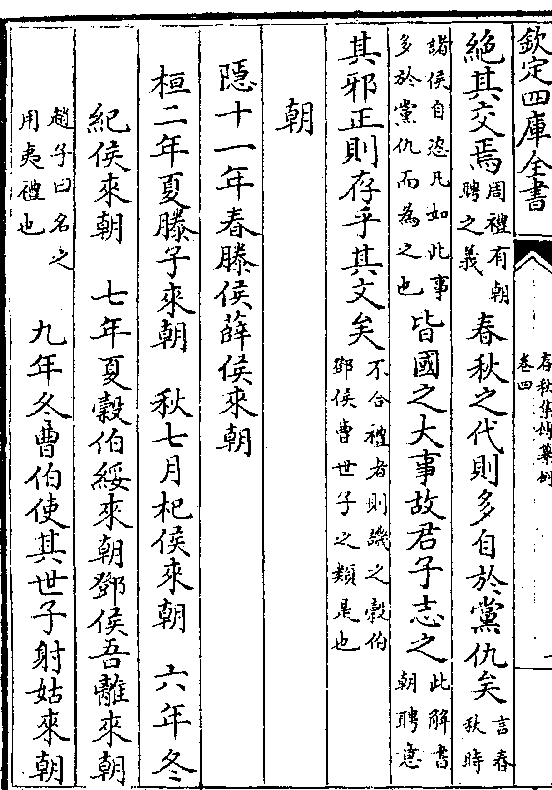 欽定四庫全書
春秋集傳纂例
卷四
絶其交焉周禮有朝聘之義春秋之代則多自於黨仇矣言春秋時
諸侯自恣凡如此事多於黨仇而為之也皆國之大事故君子志之此解書朝聘意
其邪正則存乎其文矣不合禮者則譏之榖伯鄧侯曹世子之類是也
朝
隠十一年春滕侯薛侯來朝
桓二年夏滕子來朝 秋七月杞侯來朝 六年冬
紀侯來朝 七年夏榖伯綏來朝鄧侯吾離來朝
趙子曰名之用夷禮也 九年冬曹伯使其世子射姑來朝